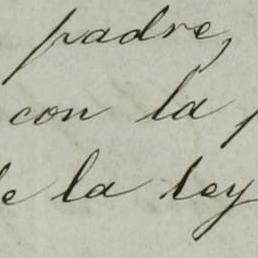 padre,
con la
de la ley